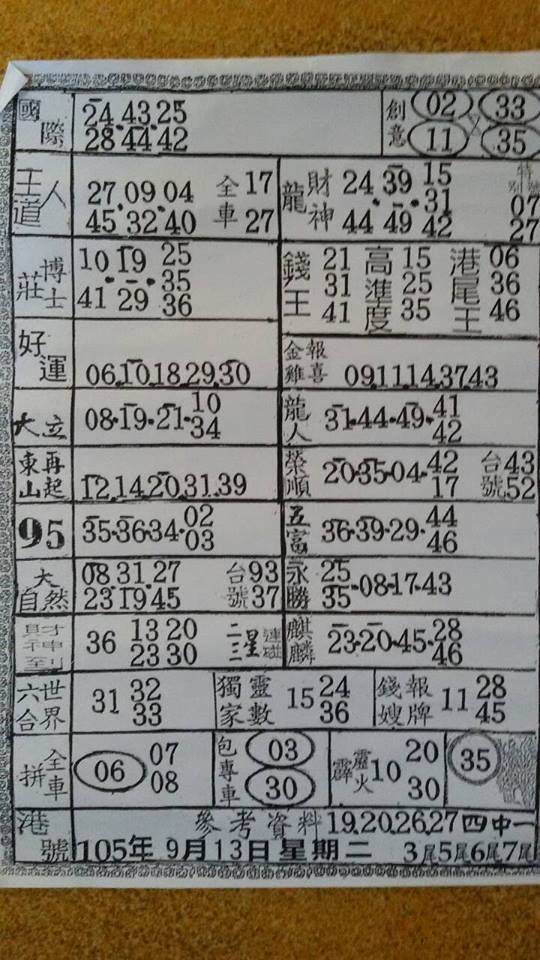 國際 24.43.25 創意 02 X 33
28.44.42 11 35
王道人 27.09.04 全車 17 龍 財神 24.39.15 特別號
45.32.40 27 44.49.31 07
42 27
莊博士 10.19.25 錢王 21 高進度 15 港尾王 06
35 31 25 36
41.29 36 41 35 46
好運 06.10.18.29.30 金雞報喜 09.11.14.37.43
大立 08.19.21.10 龍人 31.44.49.41
34 42
東山再起 12.14.20.31.39 榮順 20.35.04.42 台號 43
17 52
95 35.36.34.02 五富 36.39.29.44
03 46
大自然 08.31.27 台號 93 永勝 25.08.17.43
23.19.45 37 35
財神到 36 13 20 二三星連碰 麒麟 23.20.45.28
23 30 46
六合世界 31 32 獨家靈數 15 24 錢嫂報牌 11 28
33 36 45
拼全車 06 07 包專車 03 霹靂火 10 20 35
08 30 30
港號 參考資料 19.20.26.27 四中一
105年 9月13日 星期二 3尾5尾6尾7尾